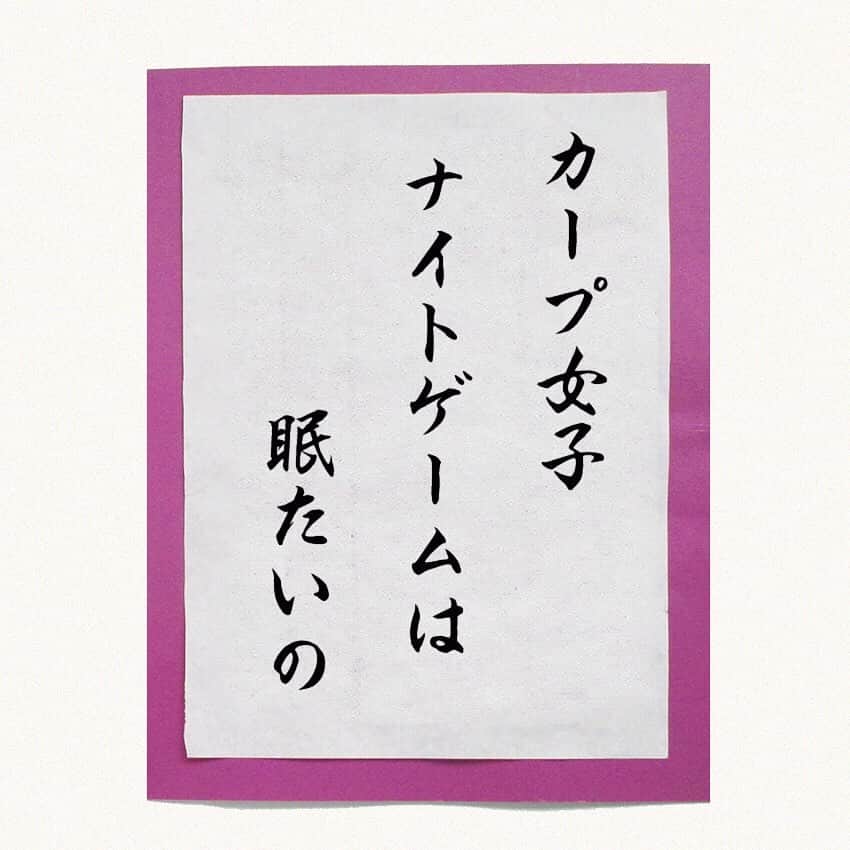 カープ女子
ナイトゲームは
眠たいの